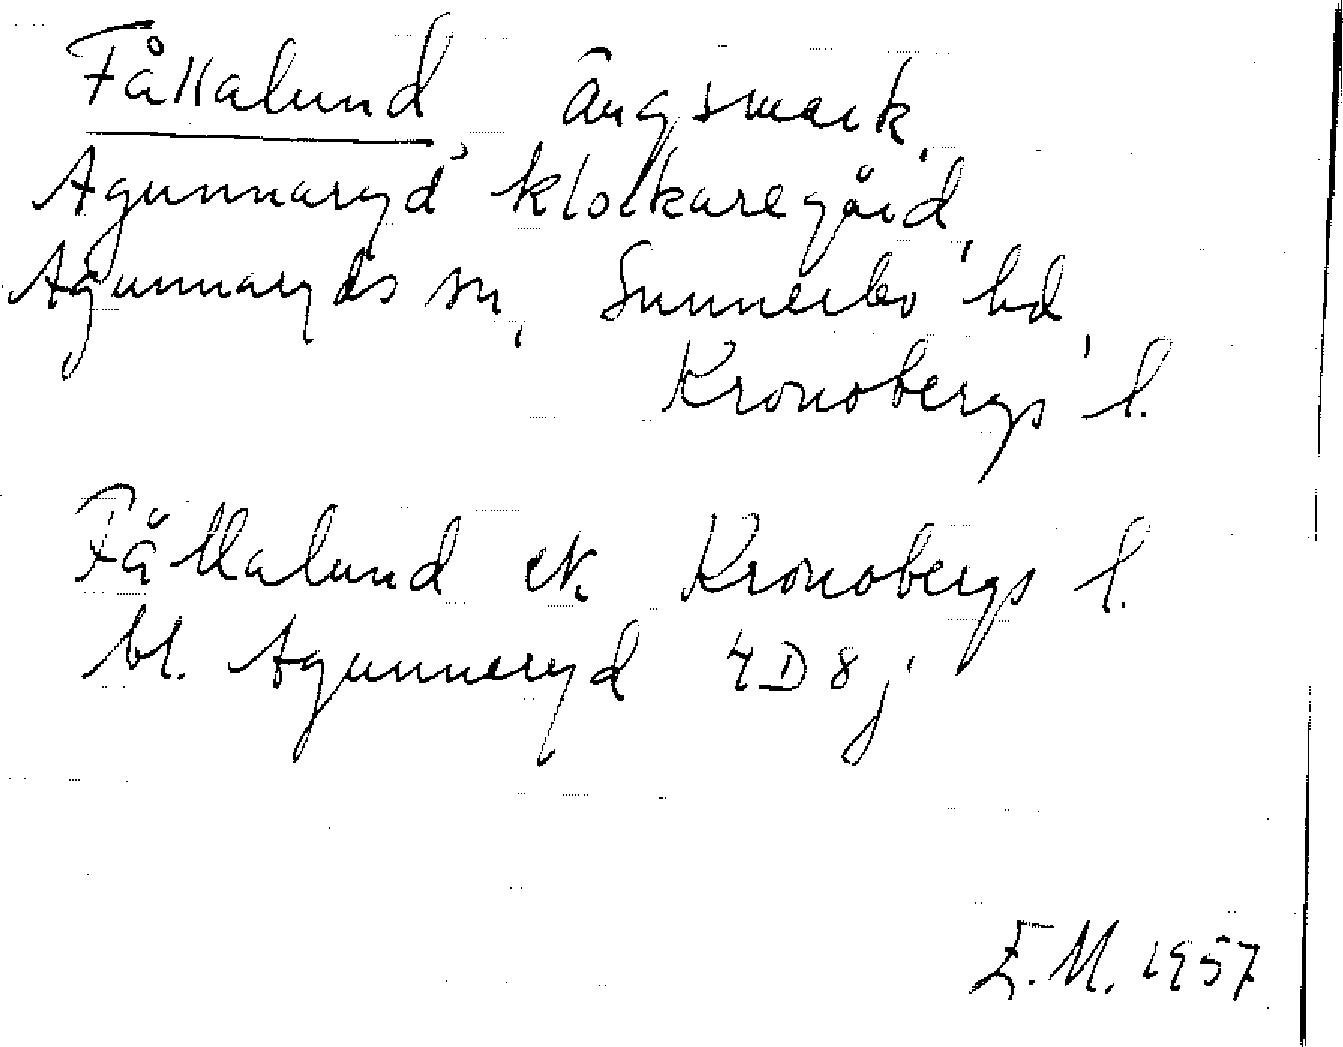 Fållalund, ängsmark,
Agunnaryd klockaregård,
Agunnaryds sn, Sunnerbo hd,
Kronobergs l.
Fållalund ek. Kronobergs l.
bl. Agunneryd 4D8j
E.M. 1957